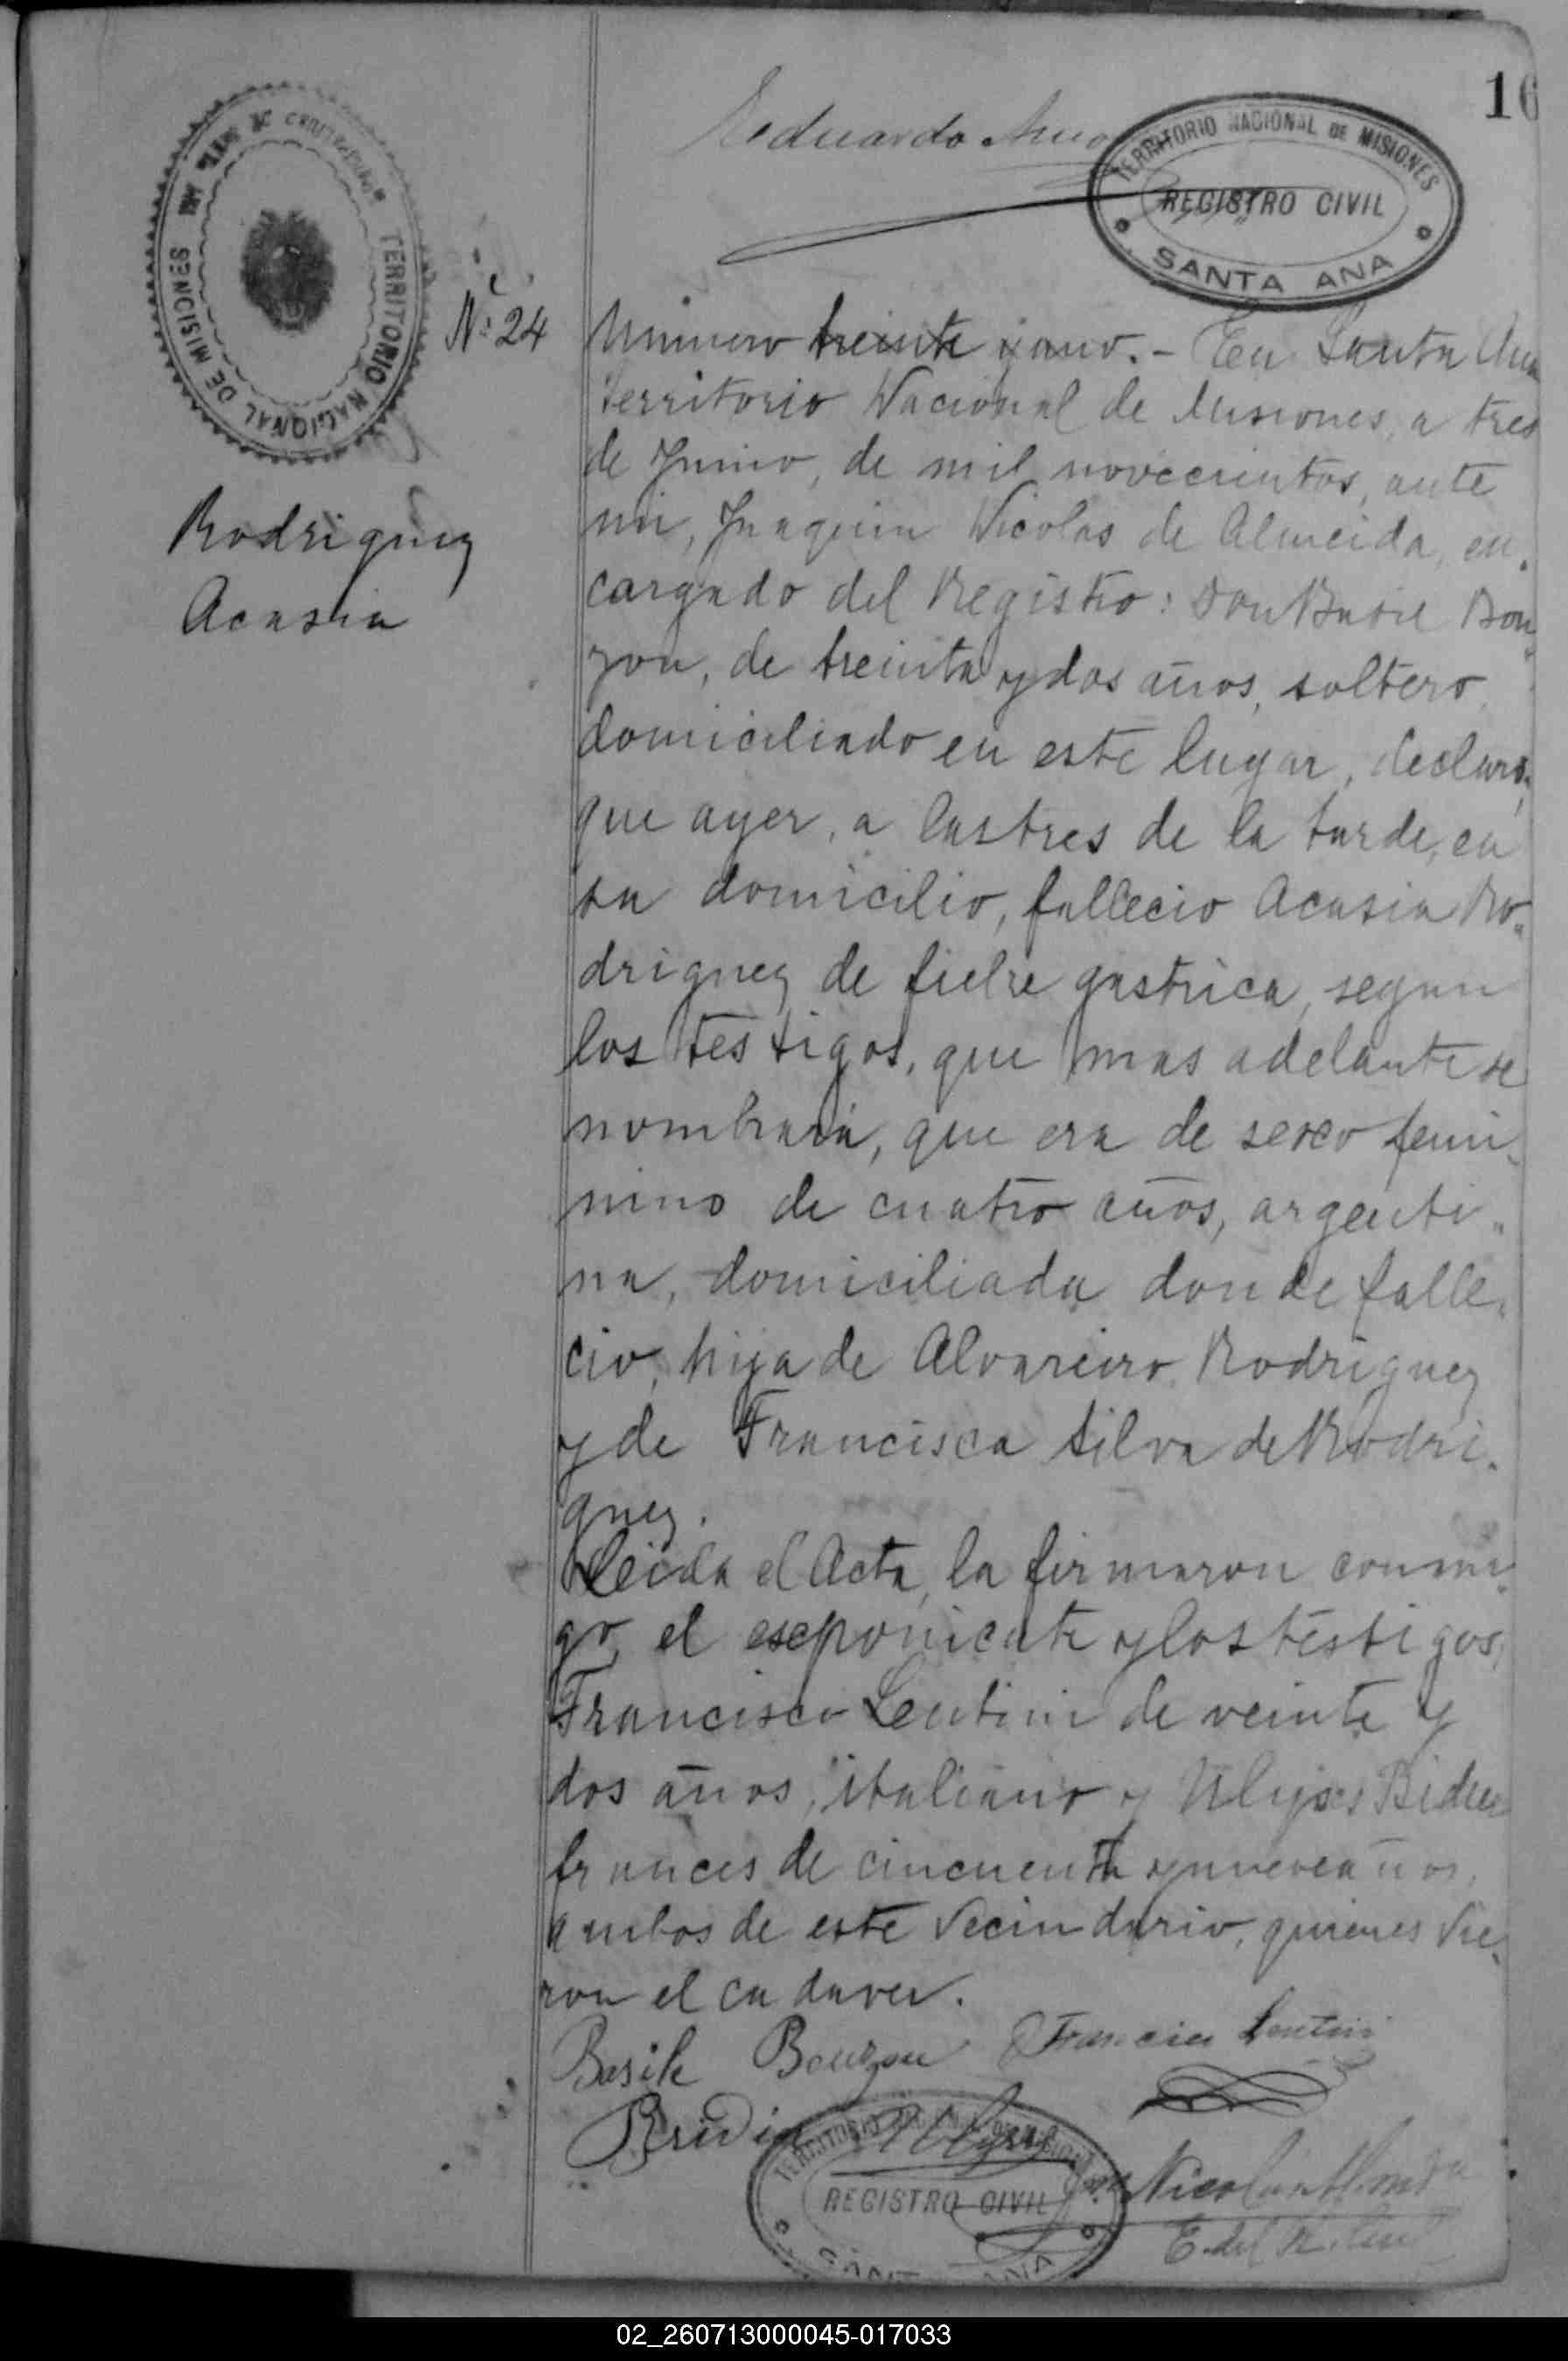 16
Eduardo
TERRITORIO NACIONAL DE MISIONES
REGISTRO CIVIL
SANTA ANA
TERRITORIO NACIONAL DE MISIONES
Nº 24
Rodriguez
Acasia
Número treinta y uno. - En Santa Ana
Territorio Nacional de Misiones, a tres
de Junio, de mil novecientos, ante
mi, Joaquin Nicolas de Almeida, en-
cargado del Registro: Don Basile Bou-
zon, de treinta y dos años, soltero,
domiciliado en este lugar, declaró,
que ayer, a las tres de la tarde, en
su domicilio, fallecio Acasia Ro-
driguez de fiebre gastrica, segun
los testigos, que mas adelante se
nombrará, que era de sexo femi-
nino de cuatro años, argenti-
na, domiciliada donde falle-
cio, hija de Alvareiro Rodriguez
y de Francisca Silva de Rodri-
guez.
Leida el Acta, la firmaron conmi-
go, el esceponicate y los testigos,
Francisco Lentini de veinte y
dos años, italiano y Ulyses
frances de cincuenta y nueve años,
ambos de este vecindario, quienes vie-
ron el cadaver.
Basile Bouzon Francisco Lentini
Ulyses
TERRITORIO NACIONAL DE MISIONES
REGISTRO CIVIL
SANTA ANA
Nicolas Almeida
E. del R. Civil
02_260713000045-017033